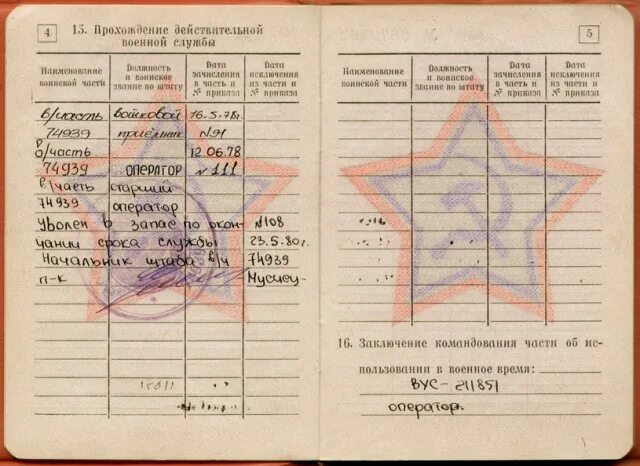 4
15. Прохождение действительной
военной службы
Наименование воинской части
Должность и воинское звание по штату
Дата зачисления в часть и № приказа
Дата исключения из части и № приказа
в/часть войсковой 16.5.78г.
74939 приёмник №91
в/часть 12.06.78
74939 оператор №111
в/часть старший
74939 оператор
Уволен в запас по окон- №108
чании срока службы 23.5.80г.
Начальник штаба в/ч 74939
п-к Мусиец-
5
Наименование воинской части
Должность и воинское звание по штату
Дата зачисления в часть и № приказа
Дата исключения из части и № приказа
16. Заключение командования части об ис-
пользовании в военное время:
ВУС-211851
оператор.